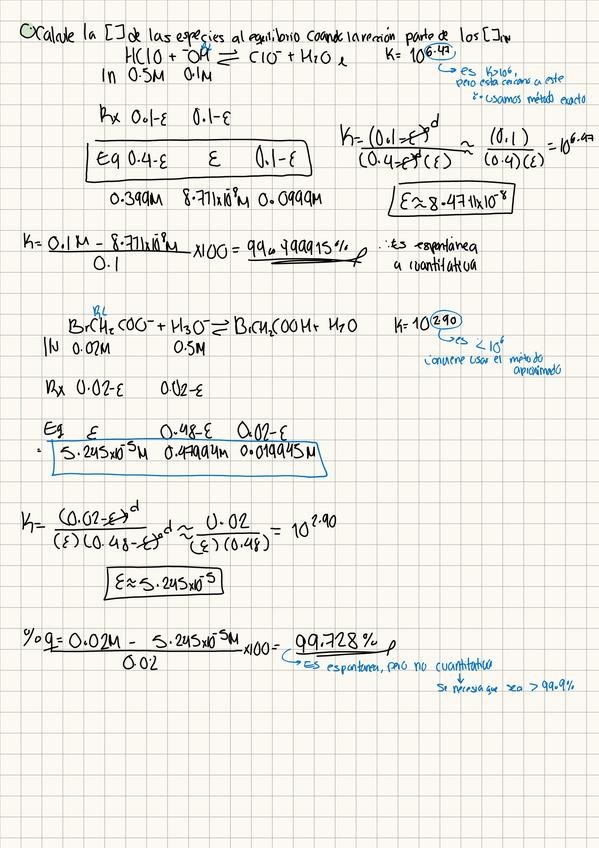 Calcule la [ ] de las especies al equilibrio cuando la rección parte de los [ ]IN
RL
HClO + ⁻OH ⇌ ClO⁻ + H₂O
K= 10^6.47
IN 0.5M 0.1M
es K>10⁶,
pero esta cercano a este
∴ usamos método exacto
Rx 0.1-ε 0.1-ε
Eq 0.4-ε ε 0.1-ε
0.399M 8.771x10⁻⁸M 0.0999M
K= (0.1-ε)d / (0.4-ε)d(ε) ≈ (0.1) / (0.4)(ε) = 10^6.47
ε≈8.4711x10⁻⁸
K= 0.1M - 8.771x10⁻⁸M / 0.1 x100 = 99.999915%
∴ Es espontanea
a cuantitativa
RL
BrCH₂COO⁻ + H₃O⁻ ⇌ BrCH₂COOH + H₂O
K= 10^2.90
IN 0.02M 0.5M
es <10⁶
conviene usar el método
aproximado
Rx 0.02-ε 0.02-ε
Eq ε 0.48-ε 0.02-ε
= 5.245x10⁻⁵M 0.47994M 0.019945M
K= (0.02-ε)d / (ε)(0.48-ε)d ≈ 0.02 / (ε)(0.48) = 10^2.90
ε≈5.245x10⁻⁵
%q= 0.02M - 5.245x10⁻⁵M / 0.02 x100= 99.728%
Es espontanea, pero no cuantitativa
Se necesia que sea > 99.9%